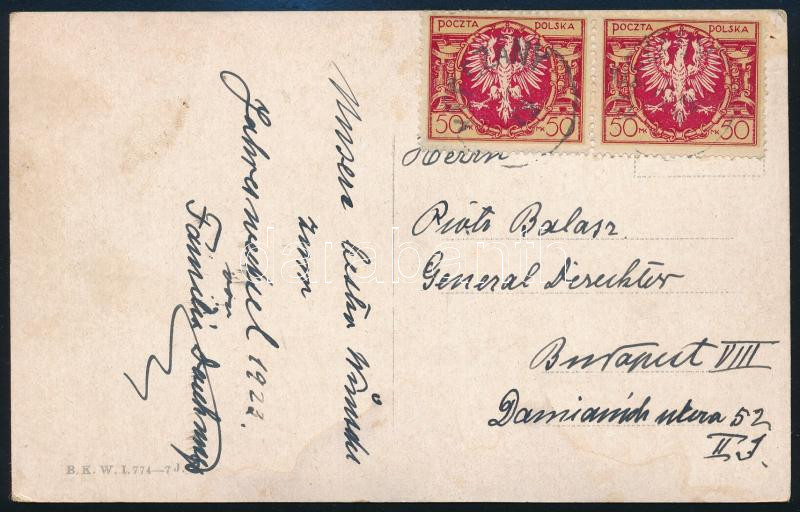 POCZTA POLSKA
50 MK 50
POCZTA POLSKA
50 MK 30
Herrn
Piotr Balasz
General Direckter
Budapest VIII
Damianich utcza 52
II I.
Unsere besten Wünsche
zum
Jahreswechsel 1922.
von
Familie
B. K. W. I. 774—7
darabanth